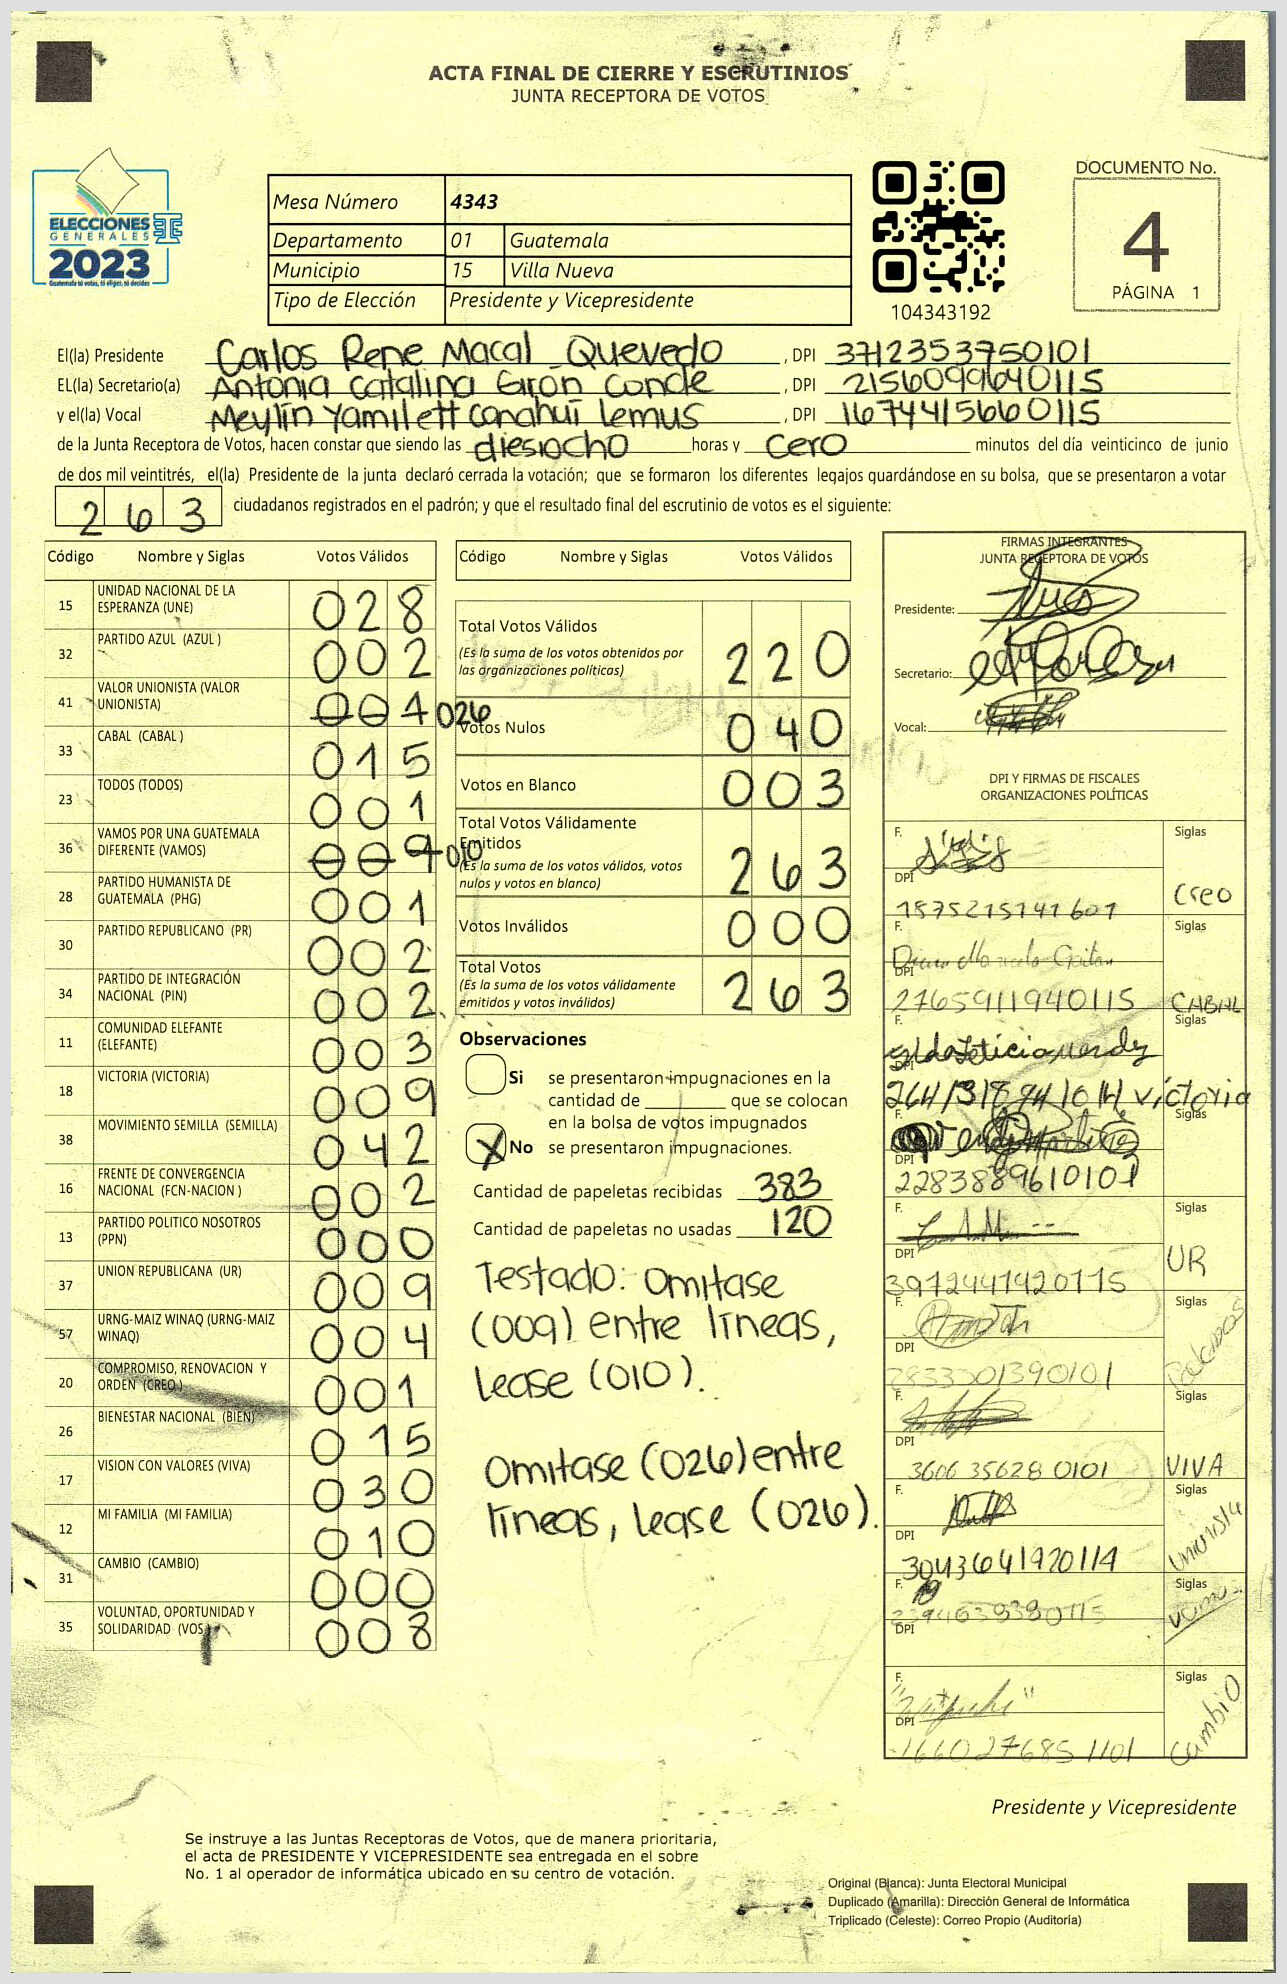 ACTA FINAL DE CIERRE Y ESCRUTINIOS
JUNTA RECEPTORA DE VOTOS
ELECCIONES
GENERALES
2023
Guatemala tú votas, tú eliges, tú decides
Mesa Número 4343
Departamento 01 Guatemala
Municipio 15 Villa Nueva
Tipo de Elección Presidente y Vicepresidente
104343192
DOCUMENTO No.
4
PÁGINA 1
El(la) Presidente Carlos Rene Macal Quevedo, DPI 3712353750101
EL(la) Secretario(a) Antonia Catalina Girón Conde, DPI 2156099640115
y el(la) Vocal Meylin Yamilett Canahuí Lemus, DPI 1674415660115
de la Junta Receptora de Votos, hacen constar que siendo las diesiocho horas y cero minutos del día veinticinco de junio
de dos mil veintitrés, el(la) Presidente de la junta declaró cerrada la votación; que se formaron los diferentes legajos guardándose en su bolsa, que se presentaron a votar
263 ciudadanos registrados en el padrón; y que el resultado final del escrutinio de votos es el siguiente:
Código Nombre y Siglas Votos Válidos
15 UNIDAD NACIONAL DE LA ESPERANZA (UNE) 028
32 PARTIDO AZUL (AZUL ) 002
41 VALOR UNIONISTA (VALOR UNIONISTA) 026
33 CABAL (CABAL ) 015
23 TODOS (TODOS) 001
36 VAMOS POR UNA GUATEMALA DIFERENTE (VAMOS) 009 010
28 PARTIDO HUMANISTA DE GUATEMALA (PHG) 001
30 PARTIDO REPUBLICANO (PR) 002
34 PARTIDO DE INTEGRACIÓN NACIONAL (PIN) 002
11 COMUNIDAD ELEFANTE (ELEFANTE) 003
18 VICTORIA (VICTORIA) 009
38 MOVIMIENTO SEMILLA (SEMILLA) 042
16 FRENTE DE CONVERGENCIA NACIONAL (FCN-NACION ) 002
13 PARTIDO POLITICO NOSOTROS (PPN) 000
37 UNION REPUBLICANA (UR) 009
57 URNG-MAIZ WINAQ (URNG-MAIZ WINAQ) 004
20 COMPROMISO, RENOVACION Y ORDEN (CREO ) 001
26 BIENESTAR NACIONAL (BIEN) 015
17 VISION CON VALORES (VIVA) 030
12 MI FAMILIA (MI FAMILIA) 010
31 CAMBIO (CAMBIO) 000
35 VOLUNTAD, OPORTUNIDAD Y SOLIDARIDAD (VOS) 008
Código Nombre y Siglas Votos Válidos
Total Votos Válidos 220
(Es la suma de los votos obtenidos por
las organizaciones políticas)
Votos Nulos 040
Votos en Blanco 003
Total Votos Válidamente
Emitidos 263
(Es la suma de los votos válidos, votos
nulos y votos en blanco)
Votos Inválidos 000
Total Votos 263
(Es la suma de los votos válidamente
emitidos y votos inválidos)
Observaciones
Si se presentaron impugnaciones en la
cantidad de ________ que se colocan
en la bolsa de votos impugnados
X No se presentaron impugnaciones.
Cantidad de papeletas recibidas 383
Cantidad de papeletas no usadas 120
Testado: Omitase
(009) entre líneas,
lease (010).
Omitase (026) entre
líneas, lease (026).
FIRMAS INTEGRANTES
JUNTA RECEPTORA DE VOTOS
Presidente:
Secretario:
Vocal:
DPI Y FIRMAS DE FISCALES
ORGANIZACIONES POLÍTICAS
F. Siglas
DPI Creo
F. Siglas
DPI 2765911940115 CABAL
F. Siglas
DPI victoria
F. Siglas
DPI 2283889610101
F. Siglas
DPI 3972441420115 UR
F. Siglas
DPI 2833301390101
F. Siglas
DPI 3606356280101 VIVA
F. Siglas
DPI 3043641920114 Unionista
F. Siglas
DPI Vamos
F. Siglas
DPI 1660276851101 Cambio
Presidente y Vicepresidente
Se instruye a las Juntas Receptoras de Votos, que de manera prioritaria,
el acta de PRESIDENTE Y VICEPRESIDENTE sea entregada en el sobre
No. 1 al operador de informática ubicado en su centro de votación.
Original (Blanca): Junta Electoral Municipal
Duplicado (Amarilla): Dirección General de Informática
Triplicado (Celeste): Correo Propio (Auditoría)